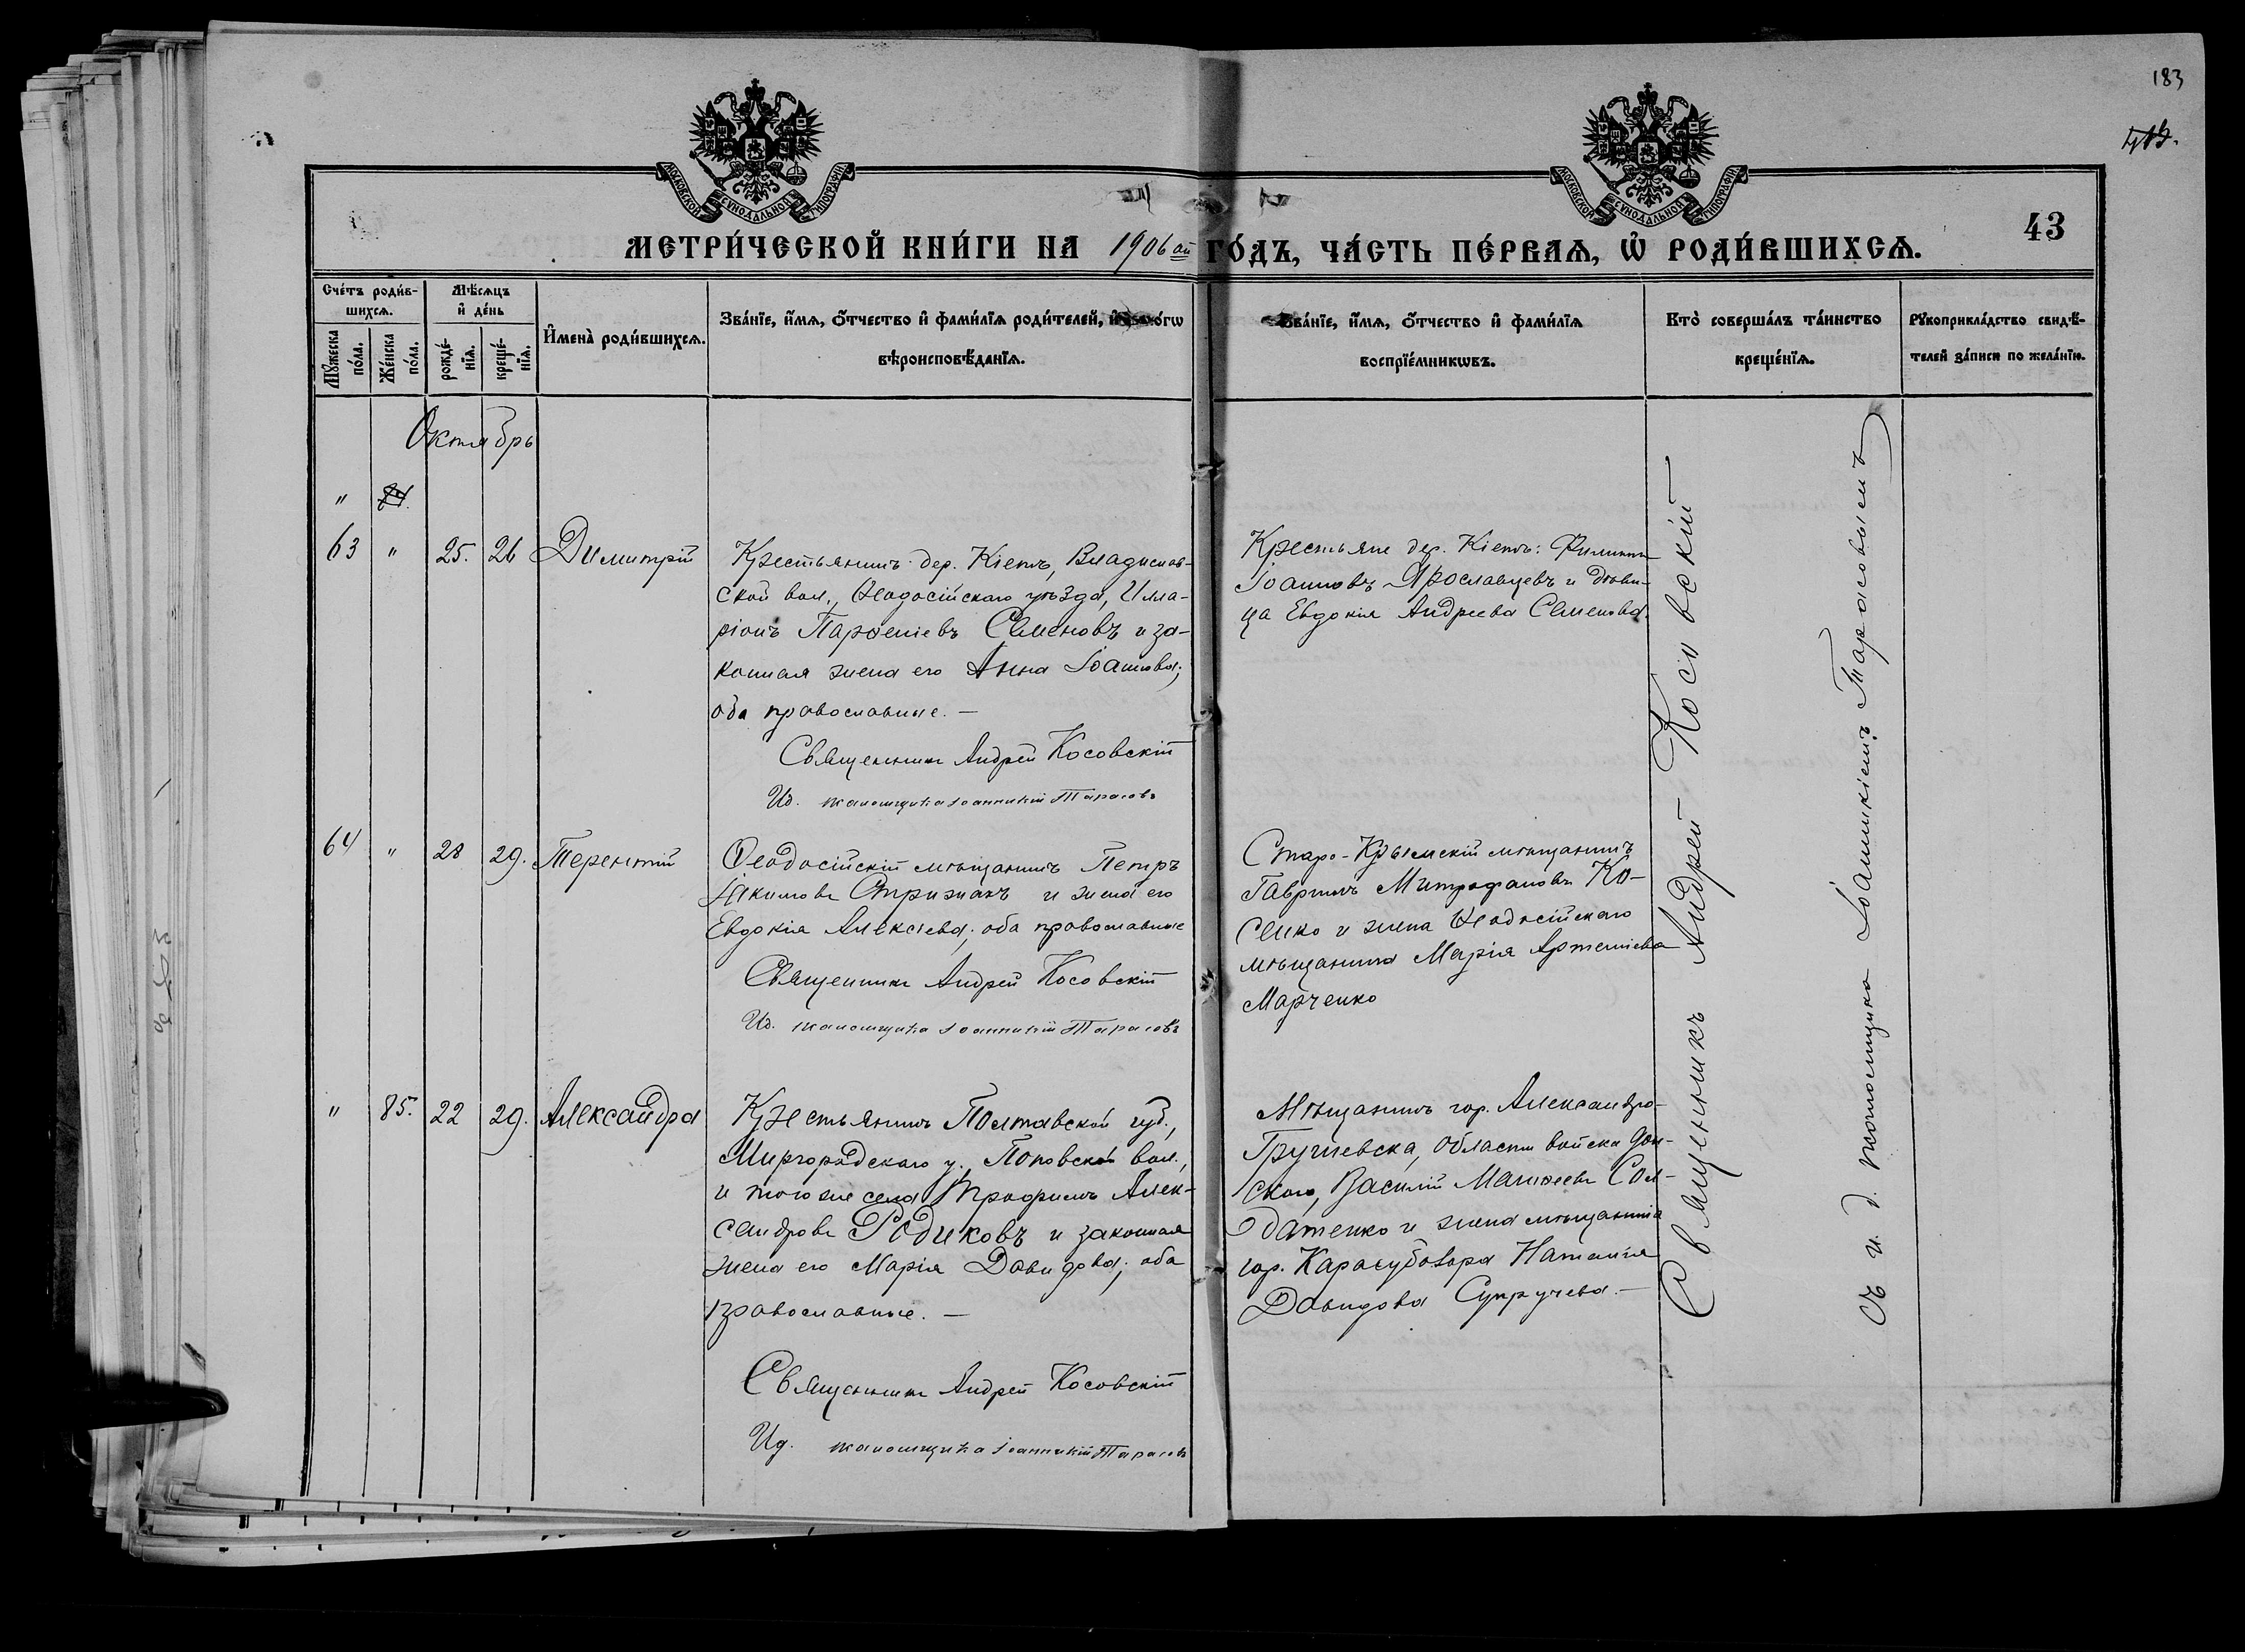 183
МОСКОВСКОЙ СѴНОДАЛЬНОЙ ТИПОГРАФІИ
МОСКОВСКОЙ СѴНОДАЛЬНОЙ ТИПОГРАФІИ
43
МЕТРИ́ЧЕСКОЙ КНИ́ГИ НА 1906 ой ГО́ДЪ, ЧА́СТЬ ПЕ́РВАѦ, Ѡ҆ РОДИ́ВШИХСѦ.
Сче́тъ роди́в-
шихсѧ.
Мꙋ́жеска
по́ла.
Же́нска
по́ла.
Мѣ́сѧцъ
и҆ де́нь
рожде́-
нїѧ.
креще́-
нїѧ.
И҆мена̀ роди́вшихсѧ.
Зва́нїе, и҆́мѧ, ѻ҆́тчество и҆ фами́лїѧ роди́телей, и҆
вѣроисповѣ́данїѧ.
Зва́нїе, и҆́мѧ, ѻ҆́тчество и҆ фами́лїѧ
воспрїе́мникѡвъ.
Кто̀ соверша́лъ та́инство
креще́нїѧ.
Рꙋкоприкла́дство свидѣ́-
телей за́писи по жела́нїю.
Октябрь
"
63 " 25. 26 Димитрій
Крестьянинъ дер. Кіетъ, Владислав-
ской вол., Ѳеодосійскаго уѣзда, Ила-
ріонъ Парѳеніевъ Семеновъ и за-
конная жена его Анна Іоаннова;
оба православные. —
Священникъ Андрей Косовскій
Ид. псаломщика Іоанникій Тарасовъ
Крестьяне дер. Кіетъ: Филиппъ
Іоанновъ Ярославцевъ и дѣви-
ца Евдокія Андреева Семенова.
64 " 28 29. Терентій
Ѳеодосійскій мѣщанинъ Петръ
Іакимовъ Стрижакъ и жена его
Евдокія Алексѣева; оба православные
Священникъ Андрей Косовскій
Ид. псаломщика Іоанникій Тарасовъ
Старо-Крымскій мѣщанинъ
Гавріилъ Митрофановъ Ко-
сенко и жена Ѳеодосійскаго
мѣщанина Марія Артеміева
Марченко
" 85. 22 29. Александра
Крестьянинъ Полтавской губ.,
Миргородскаго у., Поповской вол.,
и того же села Трофимъ Алек-
сандровъ Родиковъ и законная
жена его Марія Давидова; оба
православные. —
Священникъ Андрей Косовскій
Ид. псаломщика Іоанникій Тарасовъ
Мѣщанинъ гор. Александро-
Грушевска, Области войска Дон-
ского, Василій Матѳеевъ Сол-
датенко и жена мѣщанина
гор. Карасубазара Наталія
Давидова Супручева. —
Священникъ Андрей Косовскій
съ и. д. псаломщика Іоанникіемъ Тарасовымъ